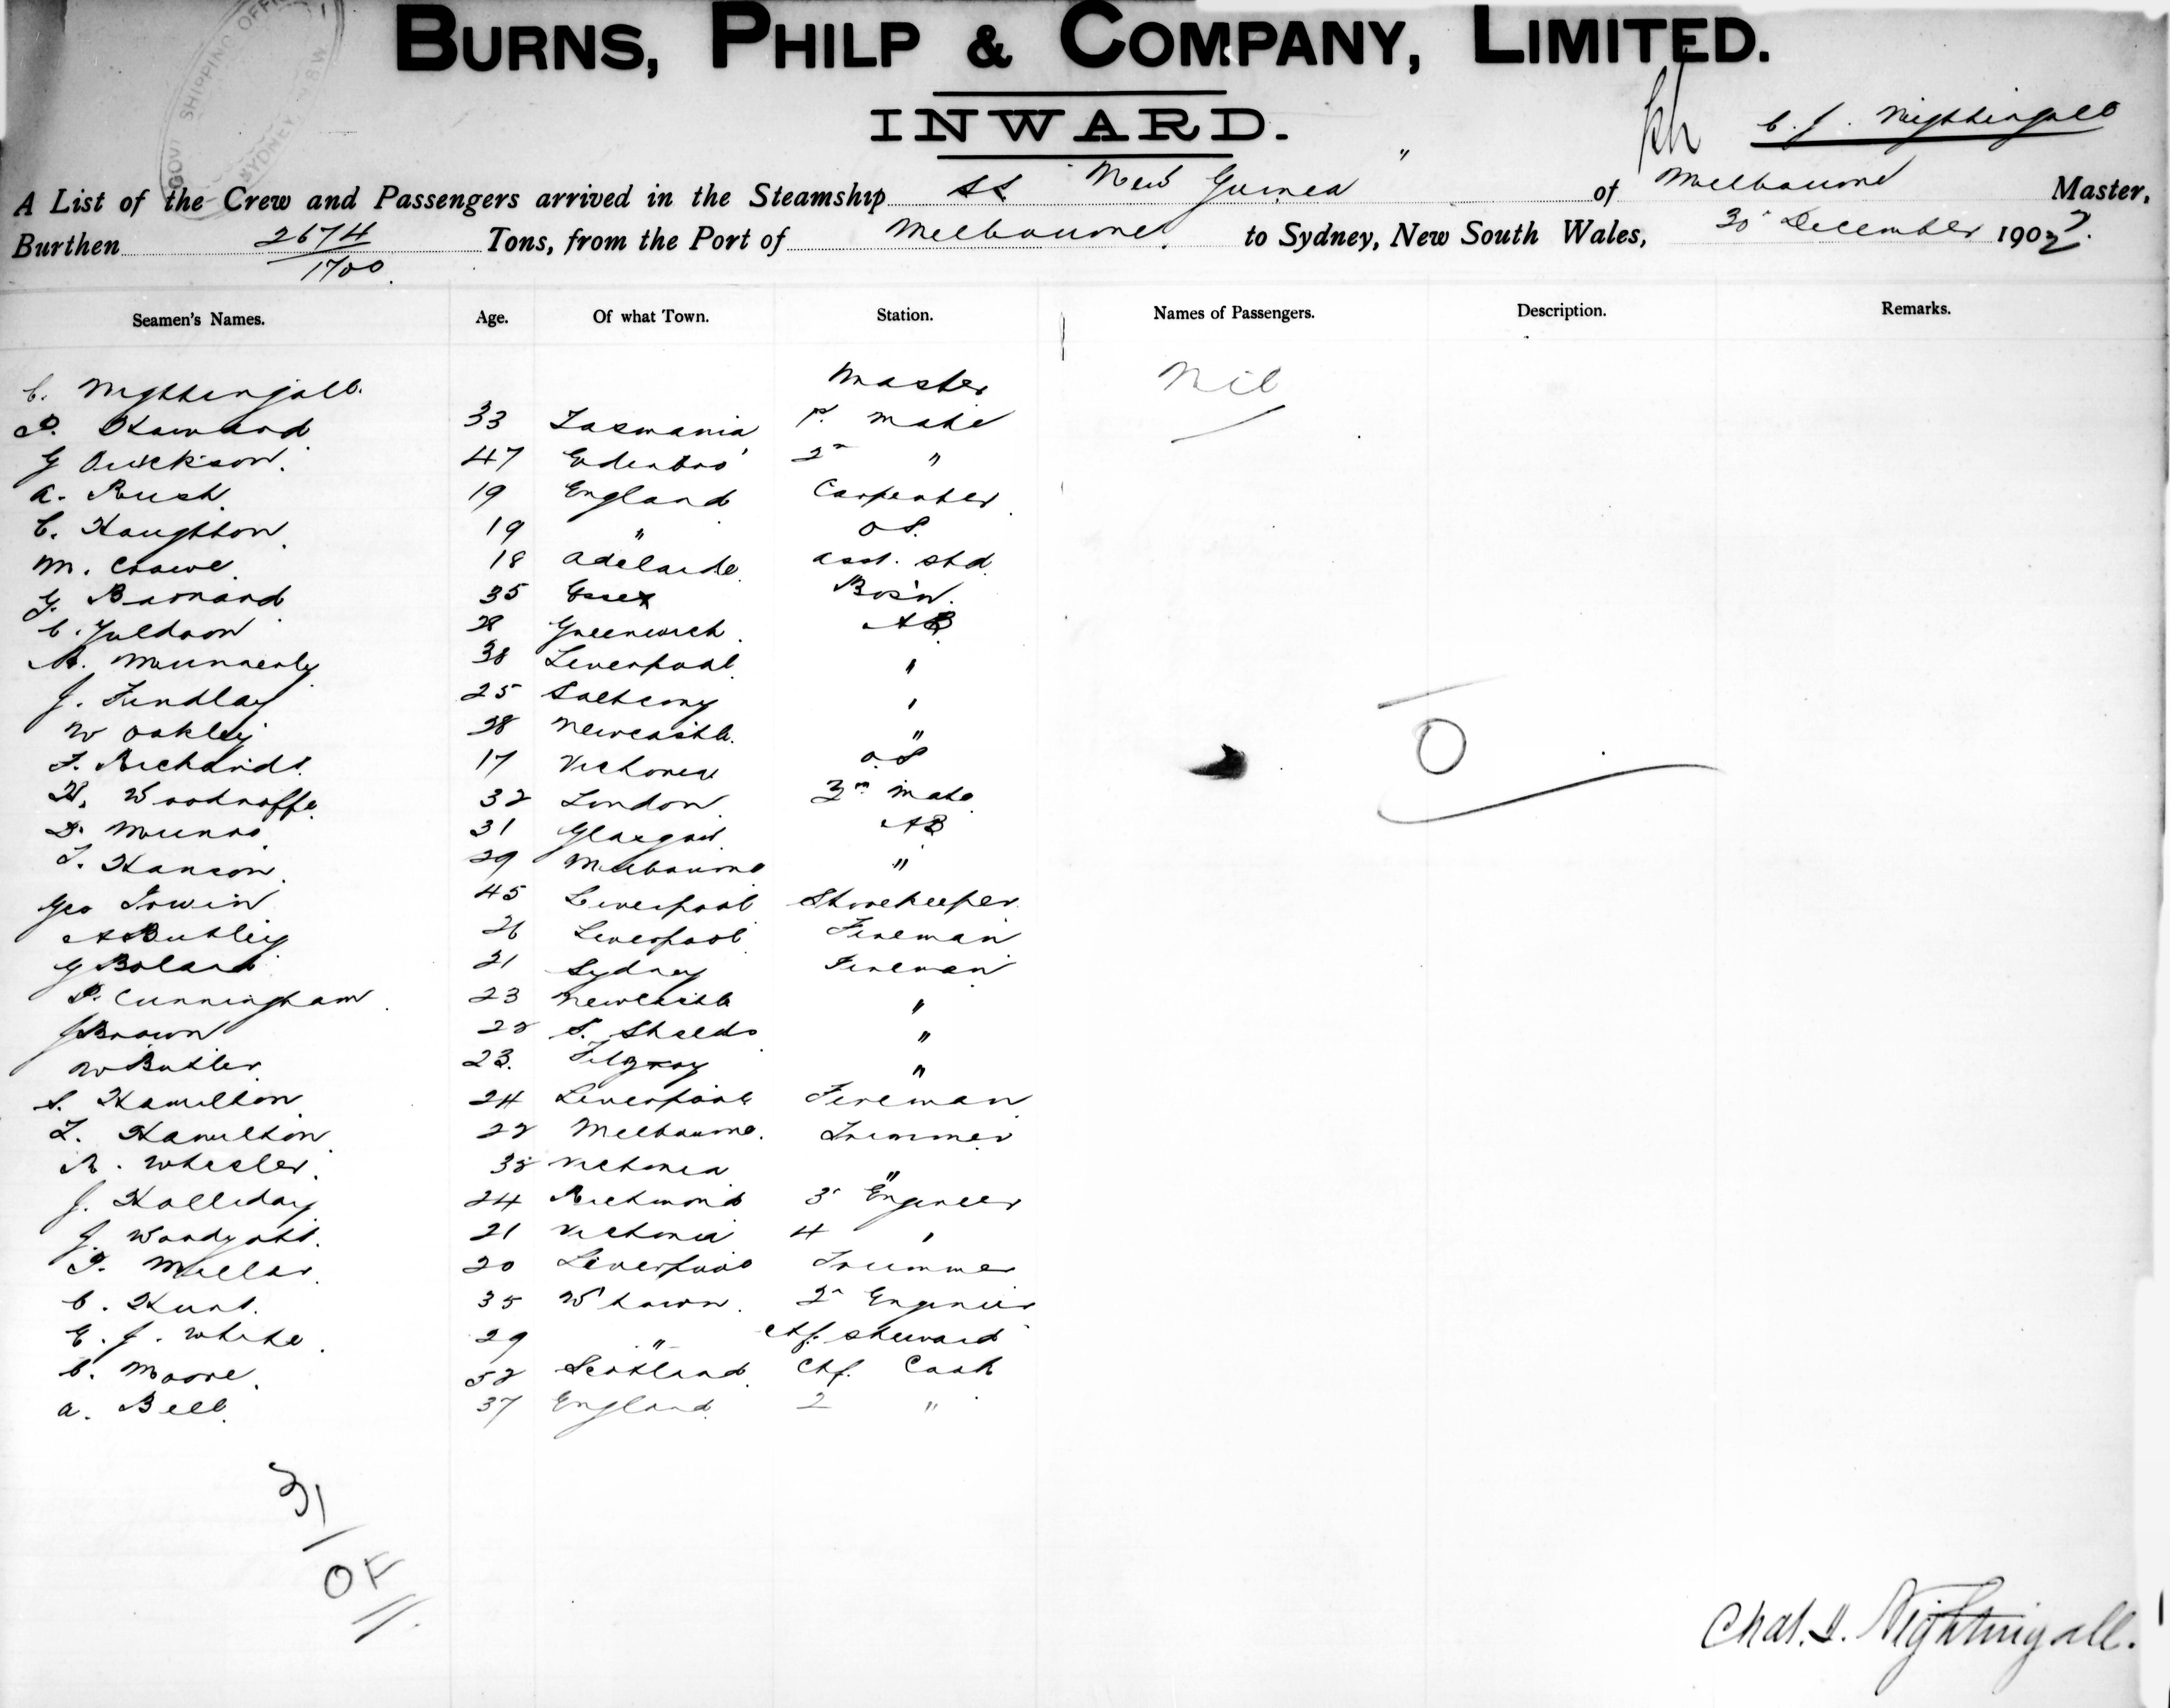 BURNS, PHILP & COMPANY, LIMITED.
GOVT SHIPPING OFFI
SYDNEY, N.S.W
INWARD.
C. J. Nightingall
A List of the Crew and Passengers arrived in the Steamship SS New Guinea " of Melbourne Master,
Burthen 2674 / 1700 Tons, from the Port of Melbourne to Sydney, New South Wales, 30 December 1907.
Seamen's Names. Age. Of what Town. Station. Names of Passengers. Description. Remarks.
C. Nightingall. Master Nil
33 Tasmania 1st Mate
G 47 Edinbro' 2nd "
A. Rush 19 England Carpenter
C. Haughton 19 " O.S.
M. Crowe 18 Adelaide asst. std.
G. Barnard 35 Essex Bos'n.
C. 28 Greenwich AB
38 Liverpool "
J. Findlay 25 "
W Oakley 28 Newcastle "
F. Richards. 17 Victoria O.S
H. Woodroffe 32 London 3rd Mate
D. Munro 31 Glasgow AB
T. Hanson 29 Melbourne "
Geo Irwin 45 Liverpool Storekeeper
A 26 Liverpool Fireman
G Boland 21 Sydney Fireman
P. Cunningham 23 Newcastle "
J Brown 22 S. Shields "
W Butler 23. Fitzroy "
S. Hamilton 24 Liverpool Fireman
T. Hamilton 22 Melbourne. Trimmer
R. Wheeler. 32 Victoria "
J. Halliday 24 Richmond 3rd Engineer
J. Woodgate. 21 Victoria 4 "
T. Millar 20 Liverpool Trimmer
C. Hunt. 35 W town. 2nd Engineer
E. J. White 29 " Chf. Steward
C. Moore. 52 Scotland Chf. Cook
A. Bell 37 England 2 "
O
31
OF
Chas. J. Nightingall.